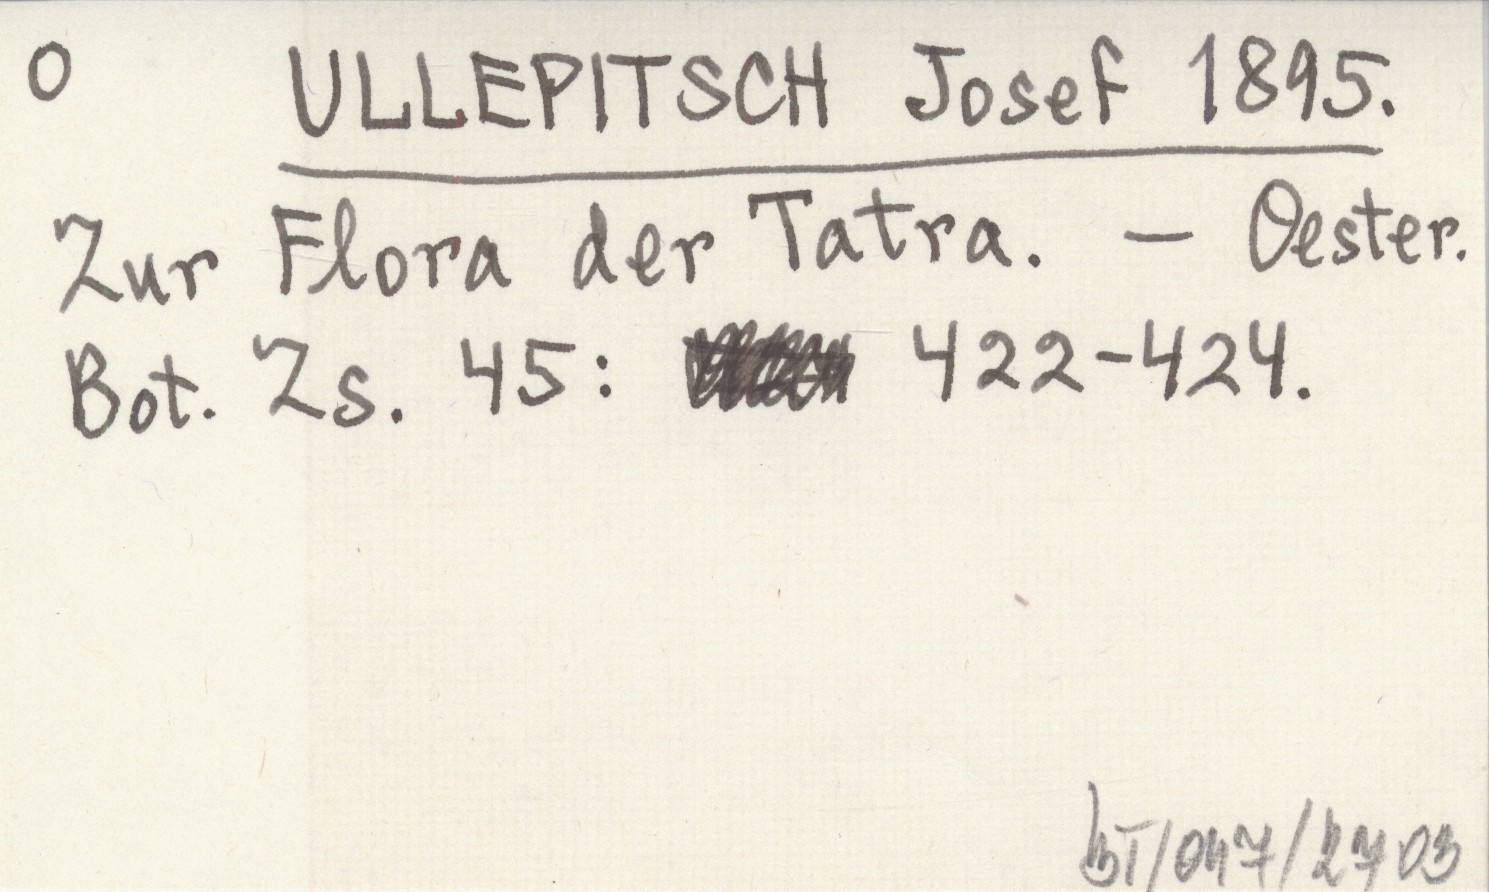 O ULLEPITSCH Josef 1895.
Zur Flora der Tatra. — Oester.
Bot. Zs. 45: 422-424.